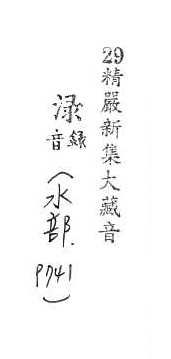 29精嚴新集大藏音
渌
音録
(水部.
P741)